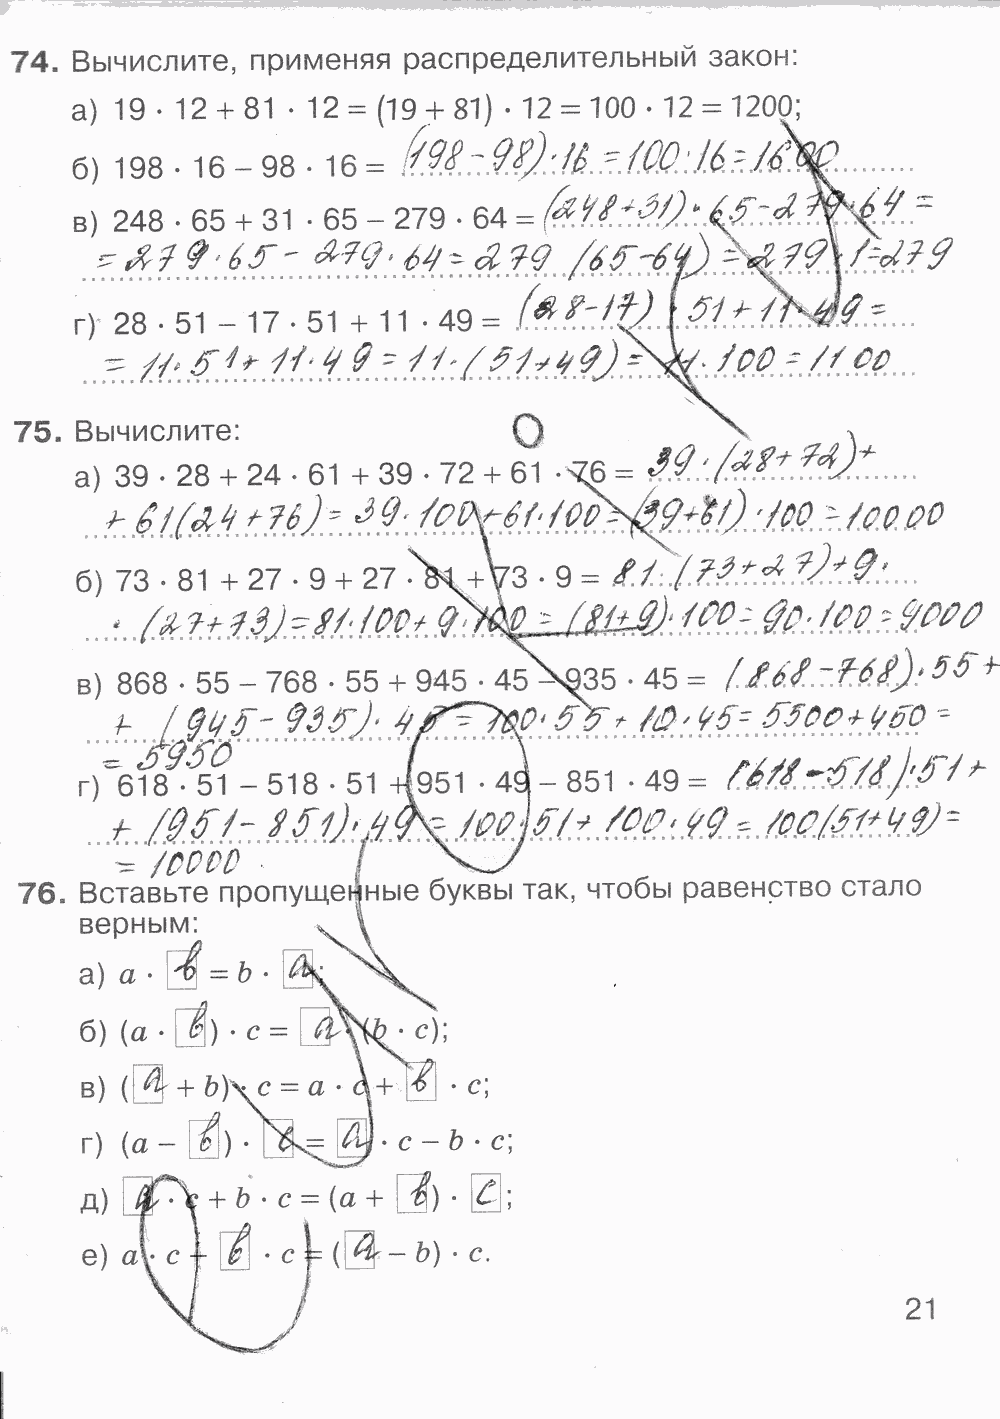 74. Вычислите, применяя распределительный закон:
а) 19 · 12 + 81 · 12 = (19 + 81) · 12 = 100 · 12 = 1200;
б) 198 · 16 – 98 · 16 = (198 – 98) · 16 = 100 · 16 = 1600
в) 248 · 65 + 31 · 65 – 279 · 64 = (248 + 31) · 65 – 279 · 64 =
= 279 · 65 – 279 · 64 = 279 (65 – 64) = 279 · 1 = 279
г) 28 · 51 – 17 · 51 + 11 · 49 = (28 – 17) · 51 + 11 · 49 =
= 11 · 51 + 11 · 49 = 11 · (51 + 49) = 11 · 100 = 1100
75. Вычислите:
а) 39 · 28 + 24 · 61 + 39 · 72 + 61 · 76 = 39 · (28 + 72) +
+ 61 (24 + 76) = 39 · 100 + 61 · 100 = (39 + 61) · 100 = 10000
б) 73 · 81 + 27 · 9 + 27 · 81 + 73 · 9 = 81 · (73 + 27) + 9 ·
· (27 + 73) = 81 · 100 + 9 · 100 = (81 + 9) · 100 = 90 · 100 = 9000
в) 868 · 55 – 768 · 55 + 945 · 45 – 935 · 45 = (868 – 768) · 55 +
+ (945 – 935) · 45 = 100 · 55 + 10 · 45 = 5500 + 450 =
= 5950
г) 618 · 51 – 518 · 51 + 951 · 49 – 851 · 49 = (618 – 518) · 51 +
+ (951 – 851) · 49 = 100 · 51 + 100 · 49 = 100 (51 + 49) =
= 10000
76. Вставьте пропущенные буквы так, чтобы равенство стало
верным:
а) a · b = b · a;
б) (a · b) · c = a · (b · c);
в) (a + b) · c = a · c + b · c;
г) (a – b) · c = a · c – b · c;
д) a · c + b · c = (a + b) · c;
е) a · c – b · c = (a – b) · c.
21